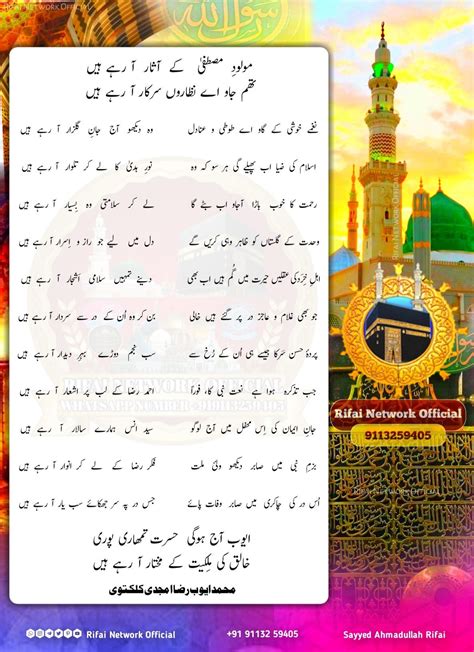 Rifai Network Official
مولودِ مصطفیٰ کے آثار آ رہے ہیں
تھم جاو اے نظاروں سرکار آ رہے ہیں
نغمے خوشی کے گاو اے طوطی و عنادل وہ دیکھو آج جانِ گلزار آ رہے ہیں
اسلام کی ضیا اب پھیلے گی ہر سو کہہ وہ نورِ ہدیٰ کا لے کر تلوار آ رہے ہیں
رحمت کا خوب باڑا آجاو اب بٹے گا لے کر سلامتی وہ بِسیار آ رہے ہیں
وحدت کے گلستاں کو ظاہر وہی کریں گے دل میں لیے جو راز و اسرار آ رہے ہیں
اہلِ خِرَد کی عقلیں حیرت میں گُم ہیں اب بھی دینے تمہیں سلامی اشجار آ رہے ہیں
جو بھی غلام و عاجز در پر گئے ہیں خالی بن کر وہ اُن کے در سے سردار آ رہے ہیں
پردۂ حسن سرکا جیسے ہی اُن کے رُخ سے سب نجم دوڑے بہرِ دیدار آ رہے ہیں
جب تذکرہ ہوا ہے نعت نبی کا، فوراً احمد رضا کے لب پر اشعار آ رہے ہیں
جانِ ایمان کی اِس محفل میں آج لوگو سید انس ہمارے سالار آ رہے ہیں
بزمِ نبی میں صابر دیکھو ولیٔ ملت فکرِ رضا کے لے کر انوار آ رہے ہیں
اُس در کی چاکری میں صابر وفات پائے جس در پہ سر جھکائے سب یار آ رہے ہیں
ایوب آج ہوگی حسرت تمھاری پوری
خالق کی مِلکِیت کے مختار آ رہے ہیں
محمد ایوب رضا امجدی کلکتوی
RIFAI NETWORK OFFICIAL
WHATSAPP NUMBER : 9113259405
Rifai Network Official
Rifai Network Official
9113259405
Rifai Network Official
Rifai Network Official
+91 91132 59405
Sayyed Ahmadullah Rifai